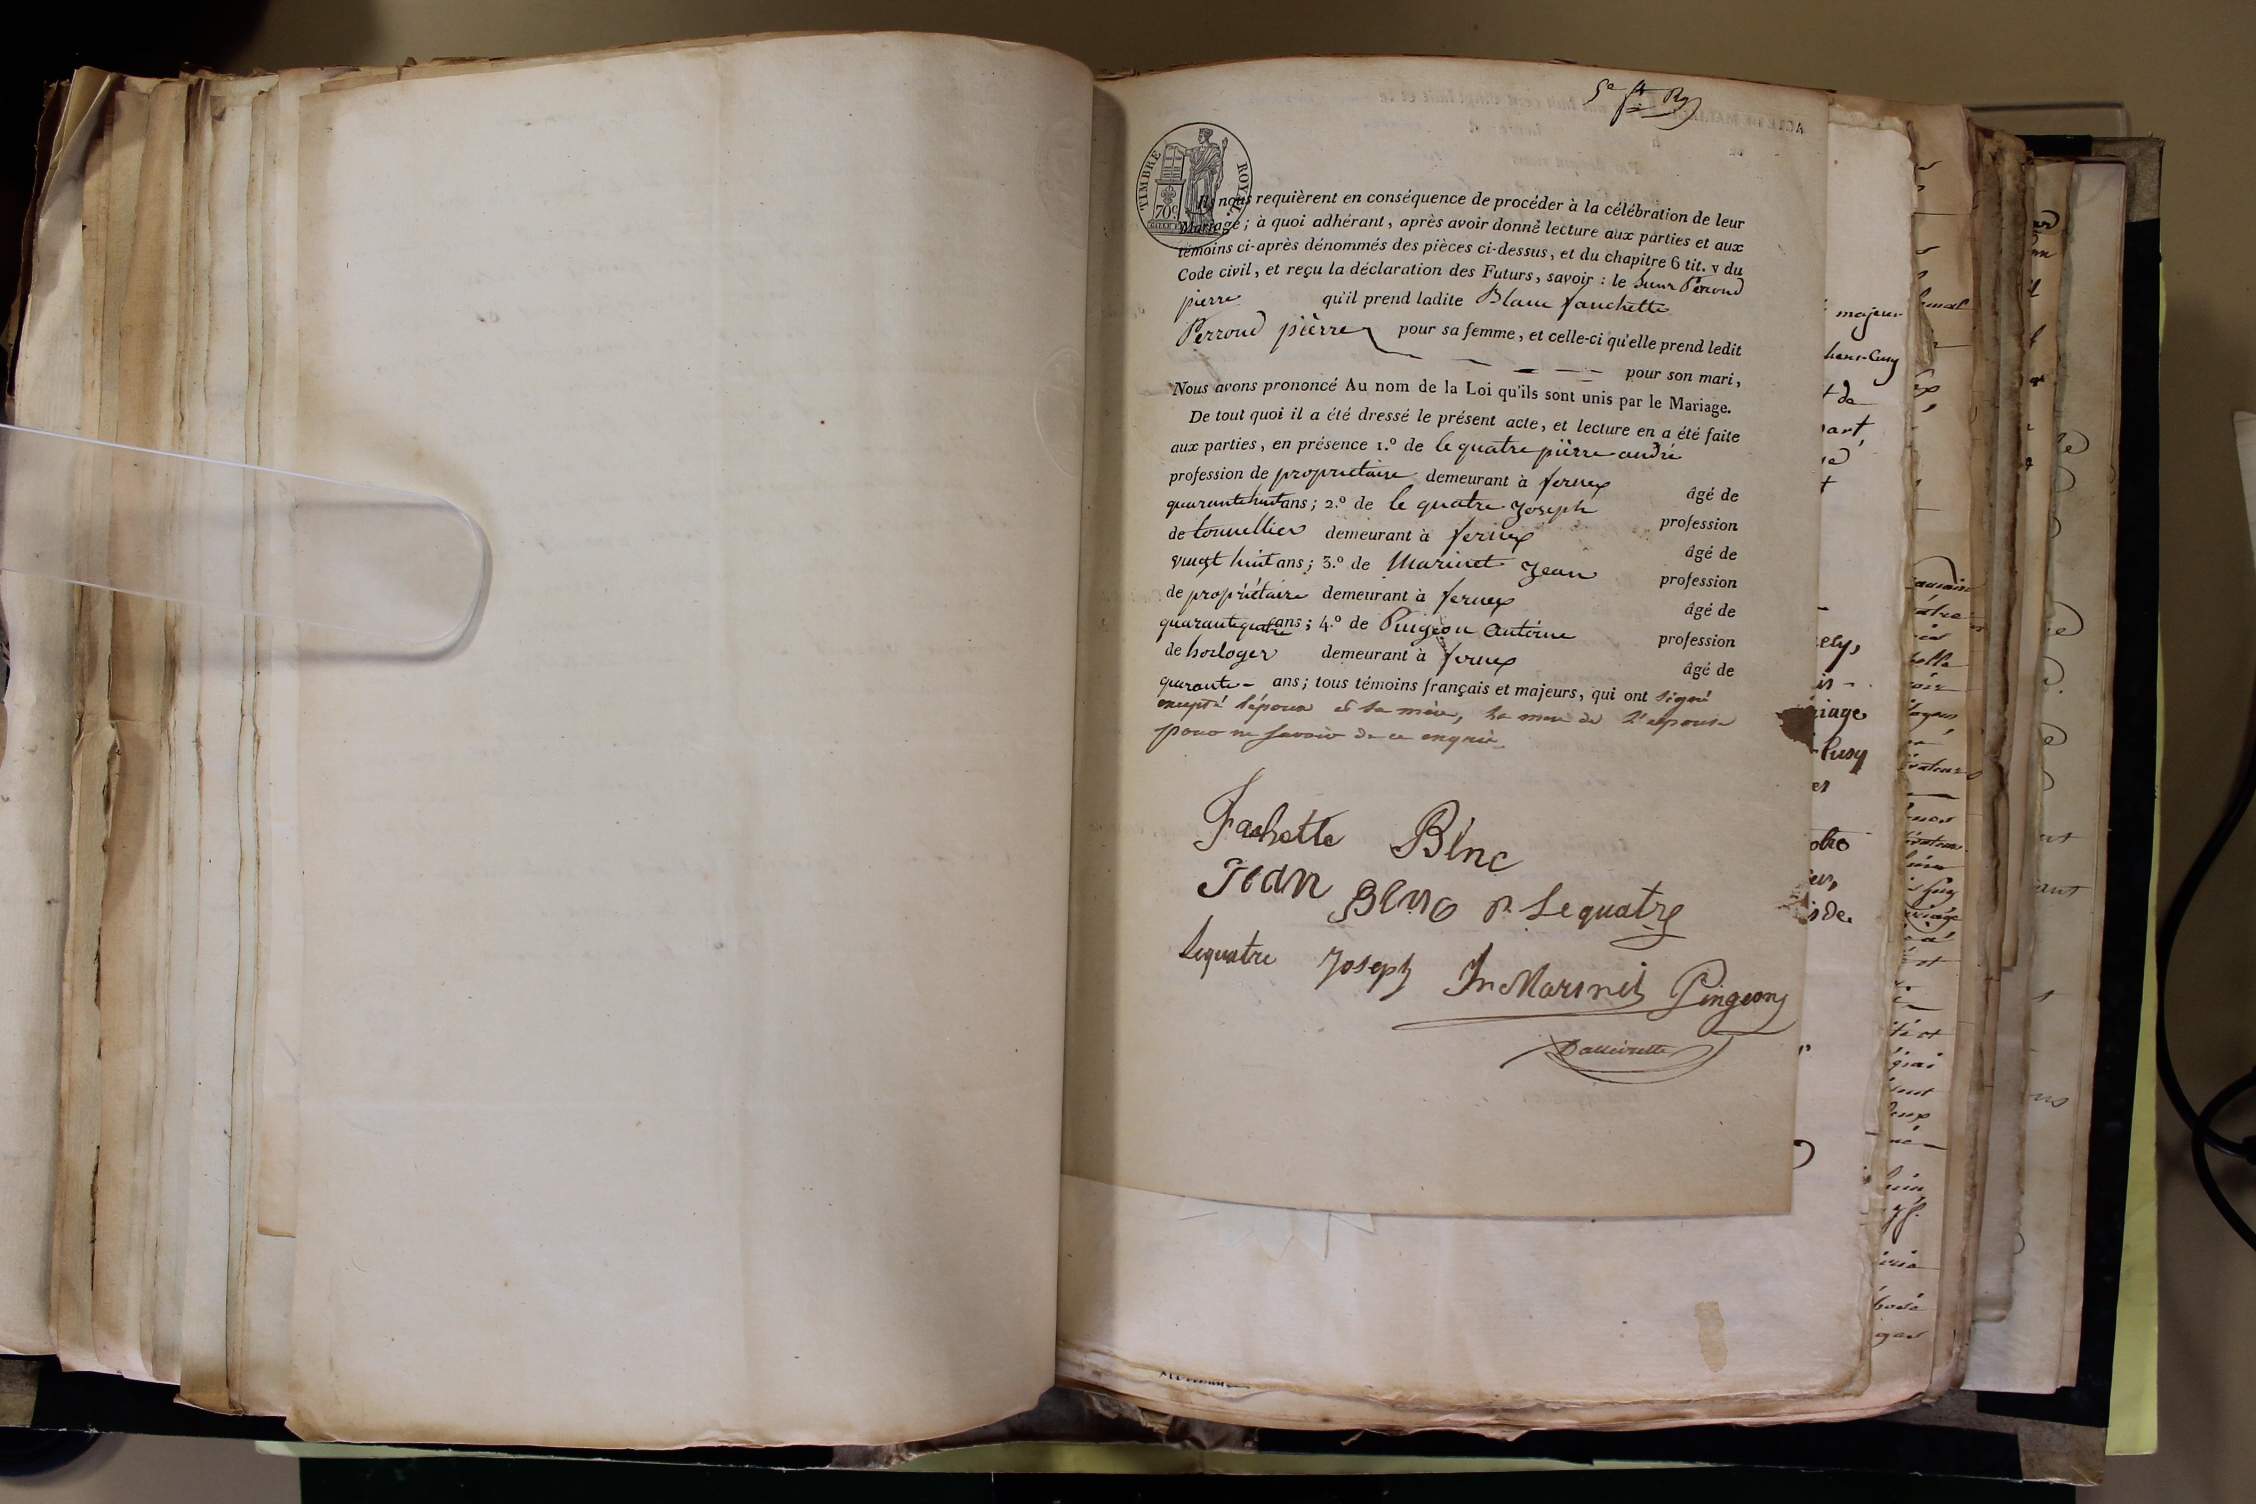 TIMBRE ROYAL
70c
Ils nous requièrent en conséquence de procéder à la célébration de leur
Mariage ; à quoi adhérant, après avoir donné lecture aux parties et aux
témoins ci-après dénommés des pièces ci-dessus, et du chapitre 6 tit. v du
Code civil, et reçu la déclaration des Futurs, savoir : le sieur Perroud
pierre qu'il prend ladite Blanc fanchette
pour sa femme, et celle-ci qu'elle prend ledit
Perroud pièrre
pour son mari,
Nous avons prononcé Au nom de la Loi qu'ils sont unis par le Mariage.
De tout quoi il a été dressé le présent acte, et lecture en a été faite
aux parties, en présence 1.º de le quatre pièrre andré
profession de propriétaire demeurant à fernex âgé de
quarante huit ans ; 2.º de le quatre Joseph profession
de tonnellier demeurant à fernex âgé de
vingt huit ans ; 3.º de Marinet Jean profession
de propriétaire demeurant à fernex âgé de
quarante quatre ans ; 4.º de Pingeon Antoine profession
de horloger demeurant à fernex âgé de
quarante - ans ; tous témoins français et majeurs, qui ont signé
excepté l'époux et sa mère, la mère de l'epouse
pour ne savoir de ce enquis
Fachette Blnc
Jean Blnc P. Lequatre
Lequatre Joseph Jn Marinet Pingeon